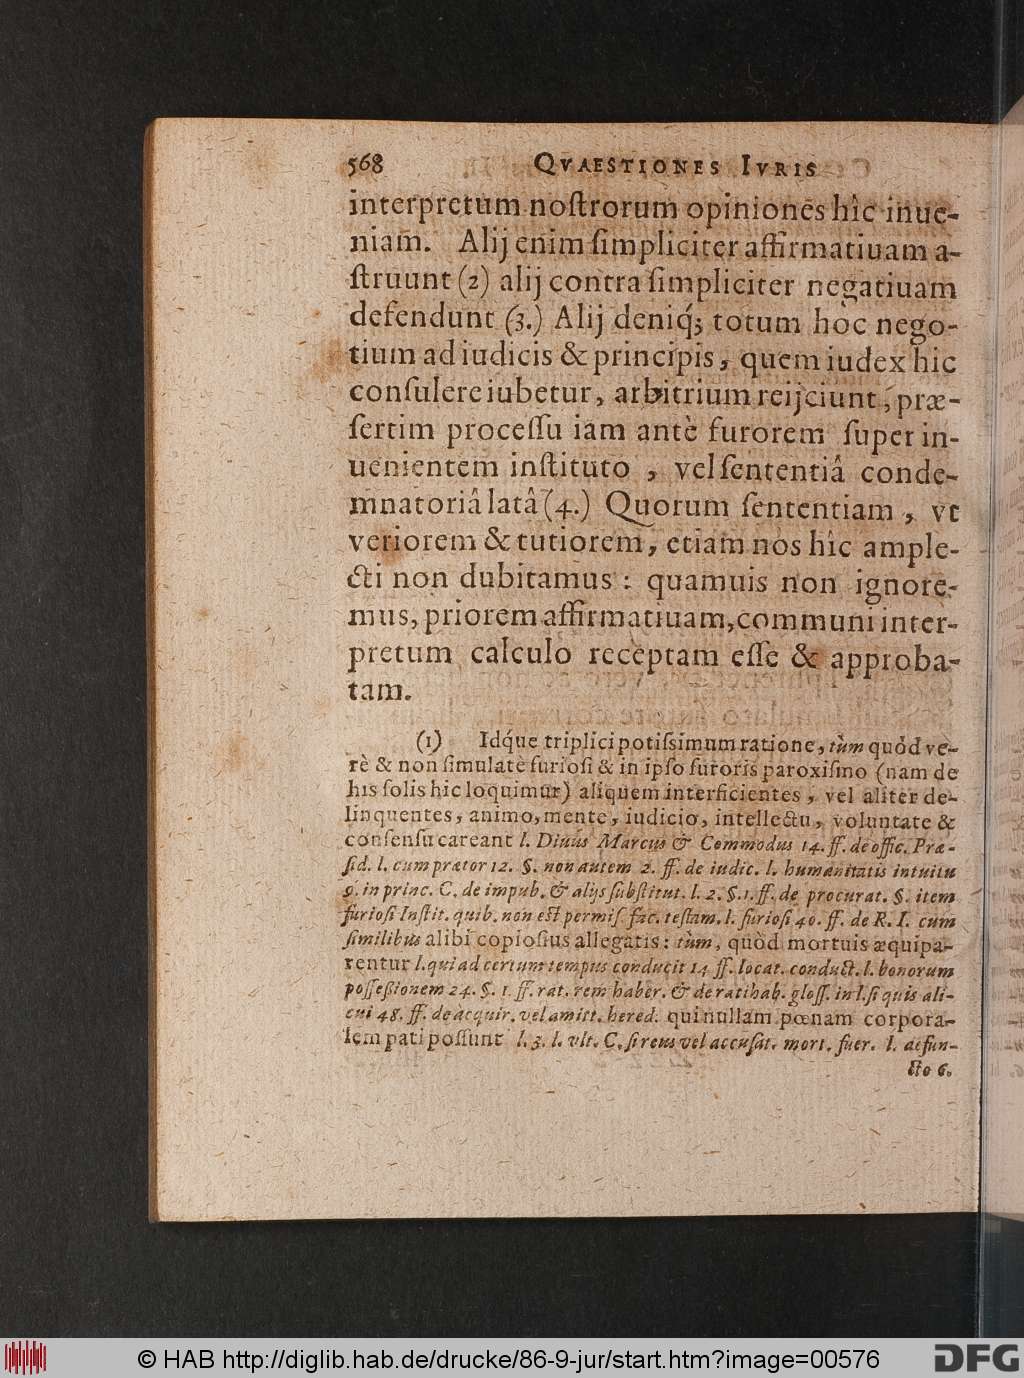 568 QVAESTIONES IVRIS
interpretum nostrorum opiniones hîc inue-
niam. Alij enim simpliciter affirmatiuam a-
struunt (2) alij contra simpliciter negatiuam
defendunt (3.) Alij deniq́; totum hoc nego-
tium ad iudicis & principis, quem iudex hic
consulere iubetur, arbitrium reijciunt, præ-
sertim processu iam antè furorem super in-
uenientem instituto, vel sententiâ conde-
mnatoriâ latâ (4.) Quorum sententiam, vt
veriorem & tutiorem, etiam nos hîc ample-
cti non dubitamus: quamuis non ignore-
mus, priorem affirmatiuam, communi inter-
pretum calculo receptam esse & approba-
tam.
(1) Idq́ue triplici potissimum ratione, tùm quòd ve-
rè & non simulatè furiosi & in ipso furoris paroxismo (nam de
his solis hic loquimur) aliquem interficientes, vel aliter de-
linquentes, animo, mente, iudicio, intellectu, voluntate &
consensu careant l. Diuus Marcus & Commodus 14. ff. de offic. Præ-
sid. l. cum prætor 12. §. non autem 2. ff. de iudic. l. humanitatis intuitu
9. in princ. C. de impub. & alijs substitut. l. 2. §. 1. ff. de procurat. §. item
furiosi Instit. quib. non est permis. fac. testam. l. furiosi 40. ff. de R. I. cum
similibus alibi copiosius allegatis: tùm, quòd mortuis æquipa-
rentur l. qui ad certum tempus conducit 14 ff. locat. conduct. l. bonorum
possessionem 24. §. 1. ff. rat. rem haber. & de ratihab. gloss. in l. si quis ali-
cui 48. ff. de acquir. vel amitt. hered. qui nullam pœnam corpora-
lem pati possunt l. 3. l. vlt. C. si reus vel accusat. mort. fuer. l. defun-
cto 6.
© HAB http://diglib.hab.de/drucke/86-9-jur/start.htm?image=00576
DFG